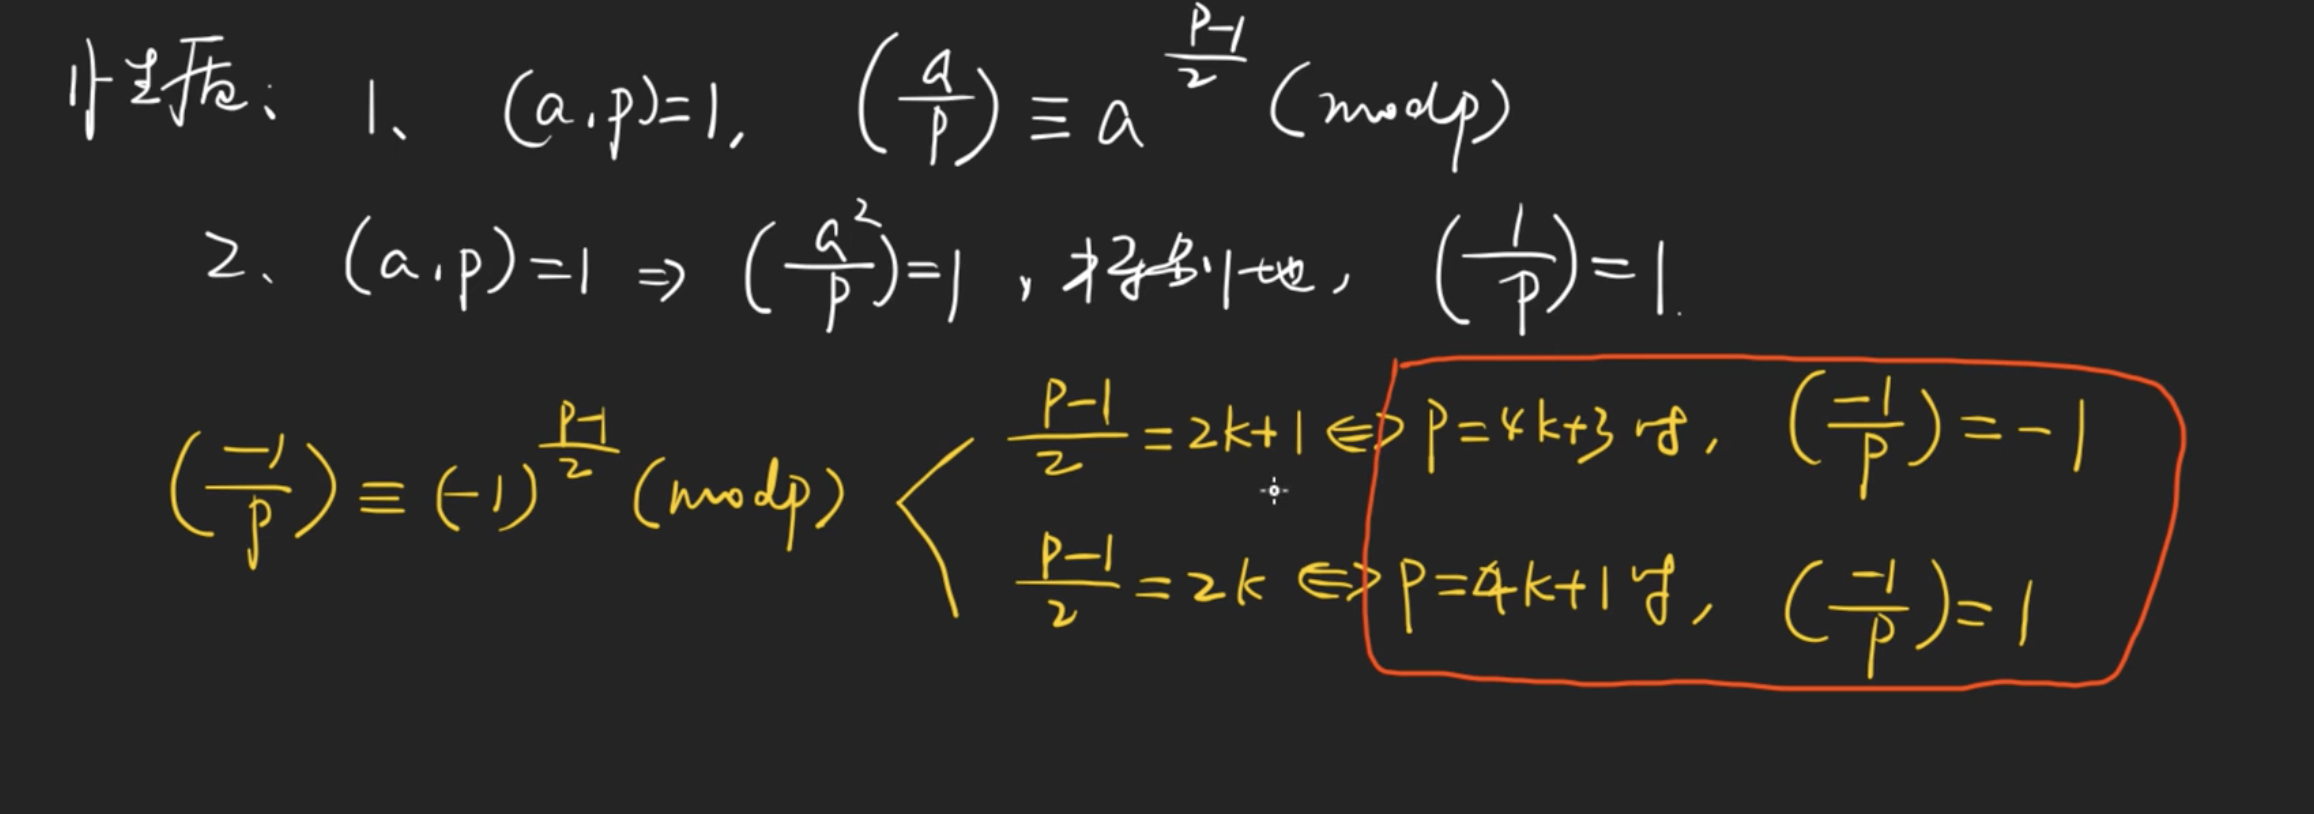 性质: 1、 (a,p)=1, (a/p) ≡ a^((p-1)/2) (mod p)
2、 (a,p)=1 ⇒ (a²/p)=1, 特别地, (1/p)=1.
(-1/p) ≡ (-1)^((p-1)/2) (mod p)
(p-1)/2 = 2k+1 ⇔ p=4k+3 时, (-1/p) = -1
(p-1)/2 = 2k ⇔ p=4k+1 时, (-1/p) = 1